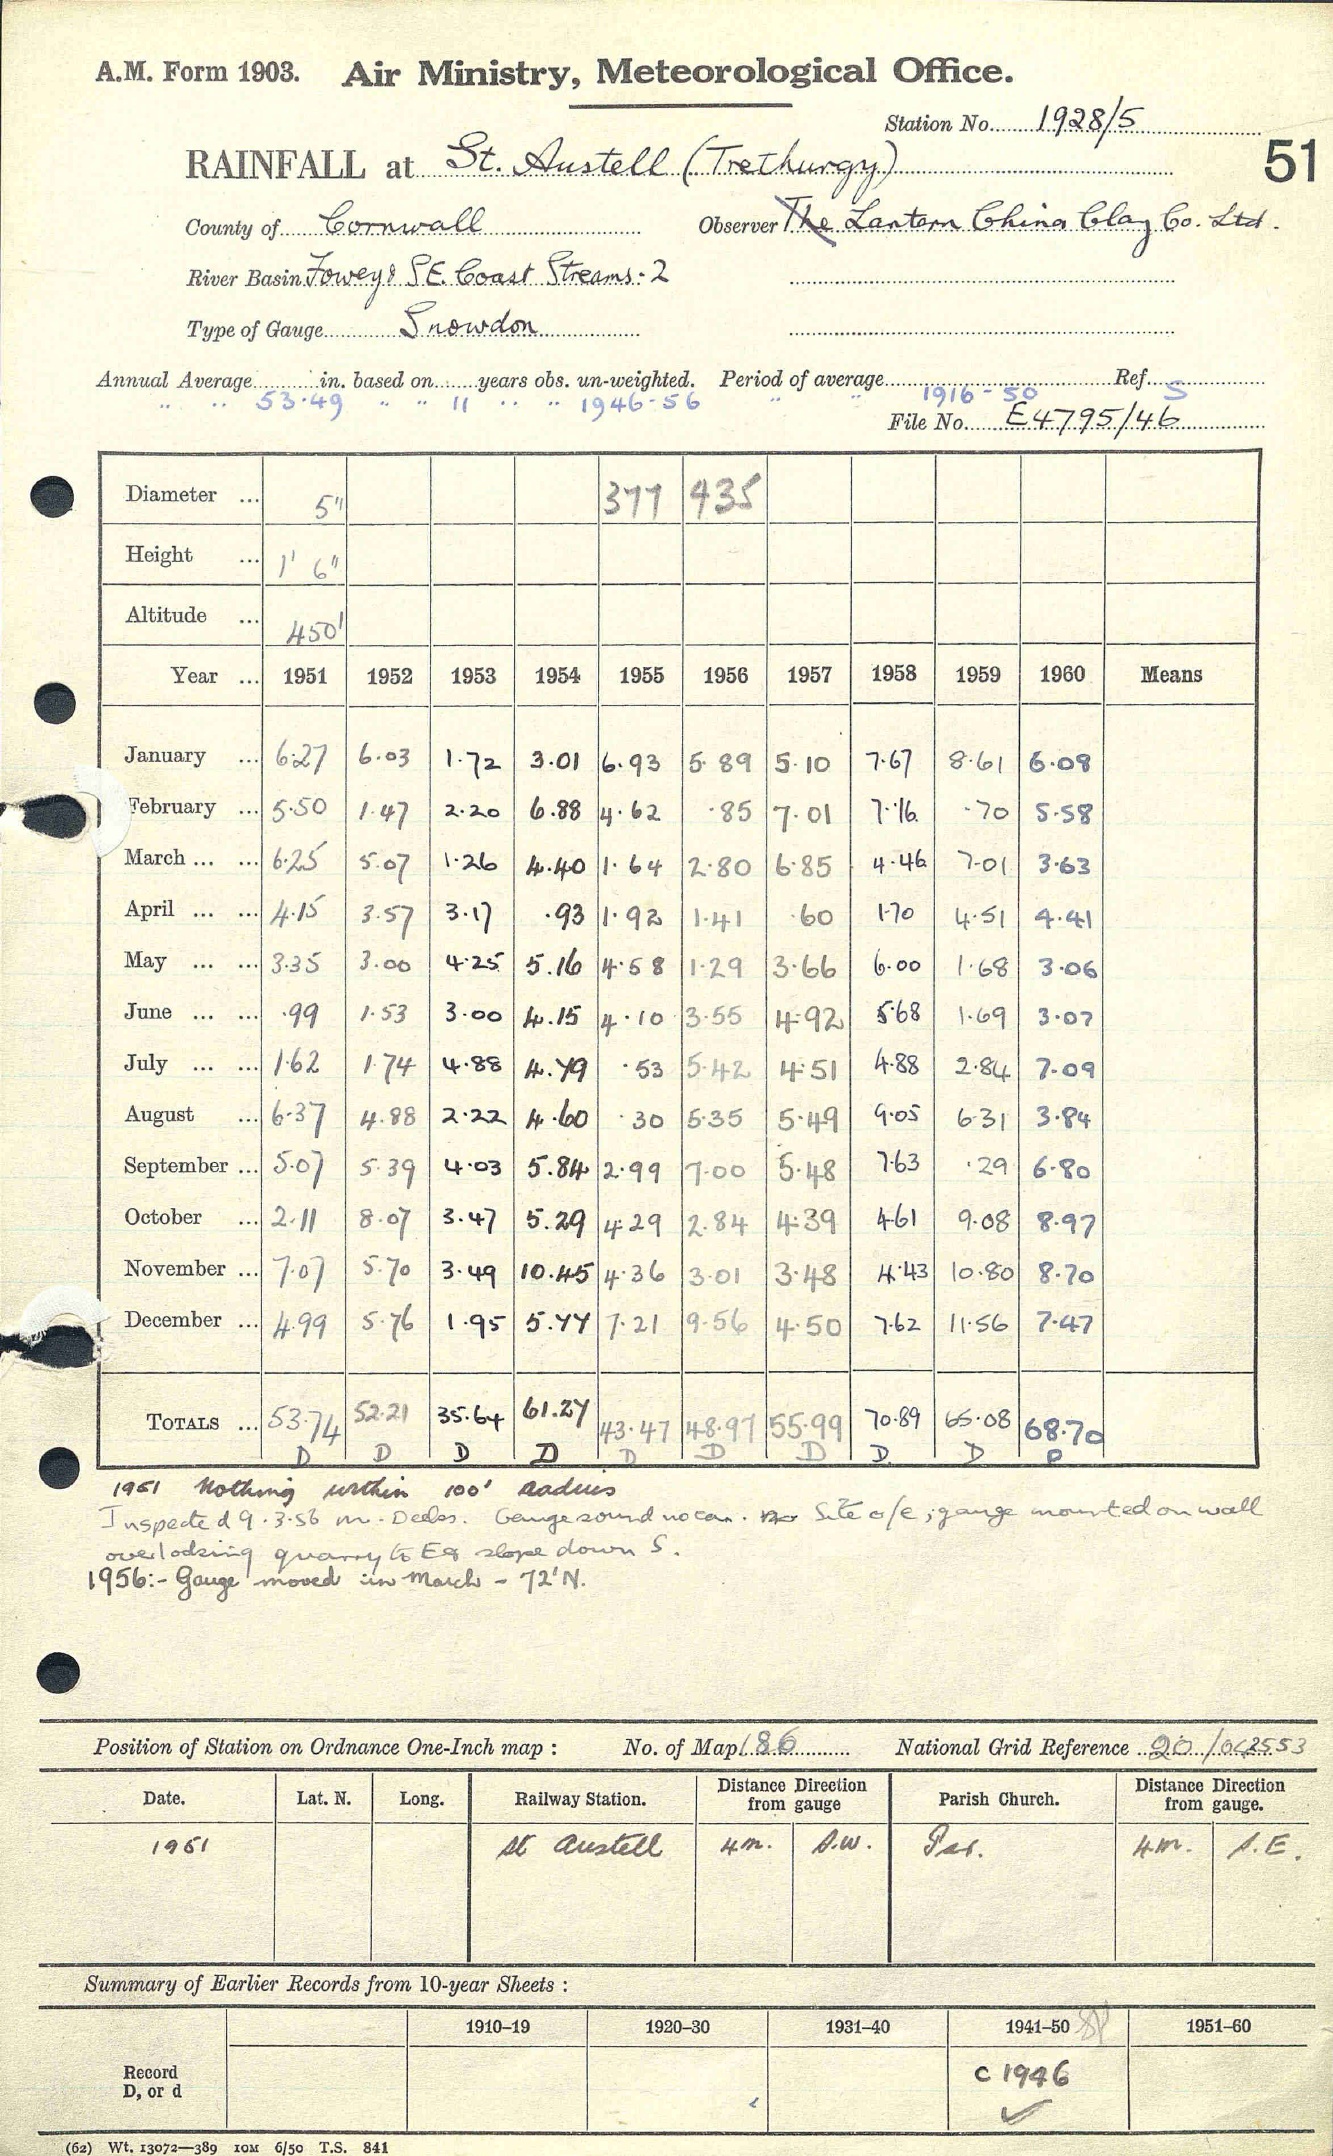 A.M. Form 1903. Air Ministry, Meteorological Office.
Station No. 1928/5
RAINFALL at St. Austell (Trethurgy)
51
County of Cornwall Observer The Lantern China Clay Co. Ltd.
River Basin Fowey & S.E. Coast Streams:- 2
Type of Gauge Snowdon
Annual Average in. based on years obs. un-weighted. Period of average Ref.
" " 53.49 " " 11 " " 1946-56 " " 1916-50 S
File No. E4795/46
Diameter ... 5" 377 435
Height ... 1' 6"
Altitude ... 450'
Year ... 1951 1952 1953 1954 1955 1956 1957 1958 1959 1960 Means
January ... 6.27 6.03 1.72 3.01 6.93 5.89 5.10 7.67 8.61 6.08
February ... 5.50 1.47 2.20 6.88 4.62 .85 7.01 7.16 .70 5.58
March ... ... 6.25 5.07 1.26 4.40 1.64 2.80 6.85 4.46 7.01 3.63
April ... ... 4.15 3.57 3.17 .93 1.92 1.41 .60 1.70 4.51 4.41
May ... ... 3.35 3.00 4.25 5.16 4.58 1.29 3.66 6.00 1.68 3.06
June ... ... .99 1.53 3.00 4.15 4.10 3.55 4.92 5.68 1.69 3.07
July ... ... 1.62 1.74 4.88 4.79 .53 5.42 4.51 4.88 2.84 7.09
August ... 6.37 4.88 2.22 4.60 .30 5.35 5.49 9.05 6.31 3.84
September ... 5.07 5.39 4.03 5.84 2.99 7.00 5.48 7.63 .29 6.80
October ... 2.11 8.07 3.47 5.29 4.29 2.84 4.39 4.61 9.08 8.97
November ... 7.07 5.70 3.49 10.45 4.36 3.01 3.48 4.43 10.80 8.70
December ... 4.99 5.76 1.95 5.77 7.21 9.56 4.50 7.62 11.56 7.47
TOTALS ... 53.74 52.21 35.64 61.27 43.47 48.97 55.99 70.89 65.08 68.70
D D D D D D D D D D
1951 Nothing within 100' radius
Inspected 9.3.56 Gauge sound no can. Site o/e; gauge mounted on wall
overlooking quarry to E & slope down S.
1956:- Gauge moved in March - 72'N.
Position of Station on Ordnance One-Inch map : No. of Map 186 National Grid Reference 20/042553
Date. Lat. N. Long. Railway Station. Distance Direction from gauge Parish Church. Distance Direction from gauge.
1951 St Austell 4m. S.W. Par. 4m. S.E.
Summary of Earlier Records from 10-year Sheets :
1910–19 1920–30 1931–40 1941–50 1951–60
Record D, or d C 1946 ✓
(62) Wt. 13072—389 10M 6/50 T.S. 841